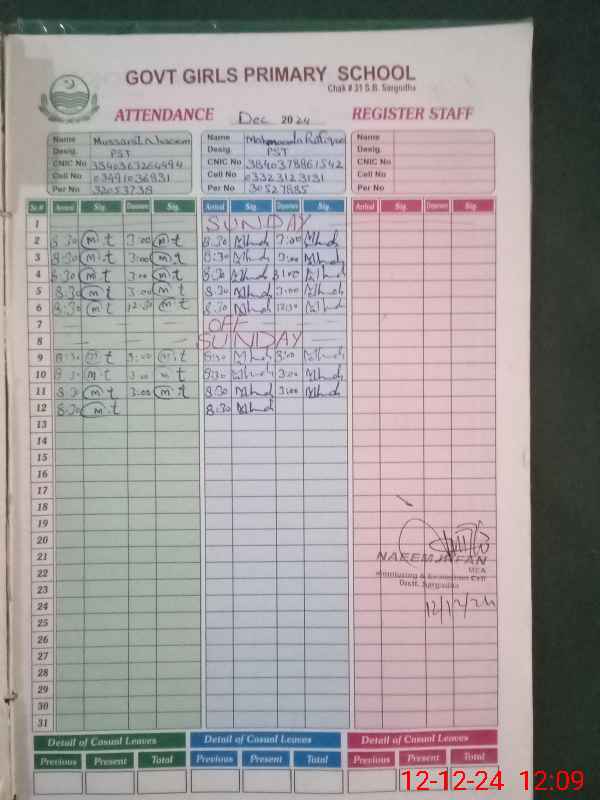 GOVT GIRLS PRIMARY SCHOOL
Chak # 31 S.B. Sargodha
ATTENDANCE Dec 2024 REGISTER STAFF
Name Mussarat Name Mahmooda Name
Desig. PST Desig. PST Desig.
CNIC No CNIC No CNIC No
Cell No 03491036931 Cell No 03323123131 Cell No
Per No 32053738 Per No 30527885 Per No
Sr.# Arrival Sig. Departure Sig. Arrival Sig. Departure Sig. Arrival Sig. Departure Sig.
1 SUNDAY
2 8:30 m t 3:00 m t 8:30 3:00
3 8:30 m t 3:00 m t 8:30 3:00
4 8:30 m t 3:00 m t 8:30 3:00
5 8:30 m t 3:00 m t 8:30 3:00
6 8:30 m t 12:30 m t 8:30 12:30
7 OFF
8 SUNDAY
9 8:30 m t 3:00 m t 8:30 3:00
10 8:30 m t 3:00 m t 8:30 3:00
11 8:30 m t 3:00 m t 8:30 3:00
12 8:30 m t 8:30
13
14
15
16
17
18
19
20
21 NAEEM IRFAN
MEA
22 Monitoring & Cell
Distt. Sargodha
23
12/12/24
24
25
26
27
28
29
30
31
Detail of Casual Leaves Detail of Casual Leaves Detail of Casual Leaves
Previous Present Total Previous Present Total Previous Present Total
12-12-24 12:09